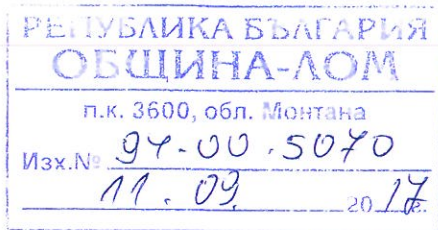 РЕПУБЛИКА БЪЛГАРИЯ
ОБЩИНА-ЛОМ
п.к. 3600, обл. Монтана
Изх.№ 94-00-5070
11.09. 2017г.